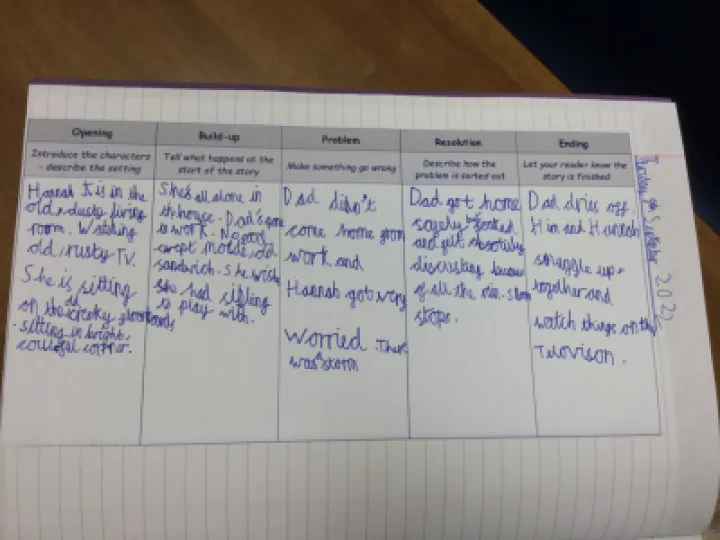 Opening
Introduce the characters
- describe the setting
Hannah is in the
old, dusty living
room. Watching
old, rusty TV.
She is sitting
on the old creaky floorboards
- sitting in bright,
colourful corner.
Build-up
Tell what happens at the
start of the story
She's all alone in
the house. Dad's gone
to work. No food
exept molde, old
sandwich. She wish
she had sibling
to play with.
Problem
Make something go wrong
Dad didn't
come home from
work and
Hannah got very
Worried. There
was a storm
Resolution
Describe how the
problem is sorted out
Dad got home
soaked
and felt
because
of all the rain. Storm
stops.
Ending
Let your reader know the
story is finished
Dad dries off.
Him and Hannah
snuggle up
together and
watch things on the
Telovison.